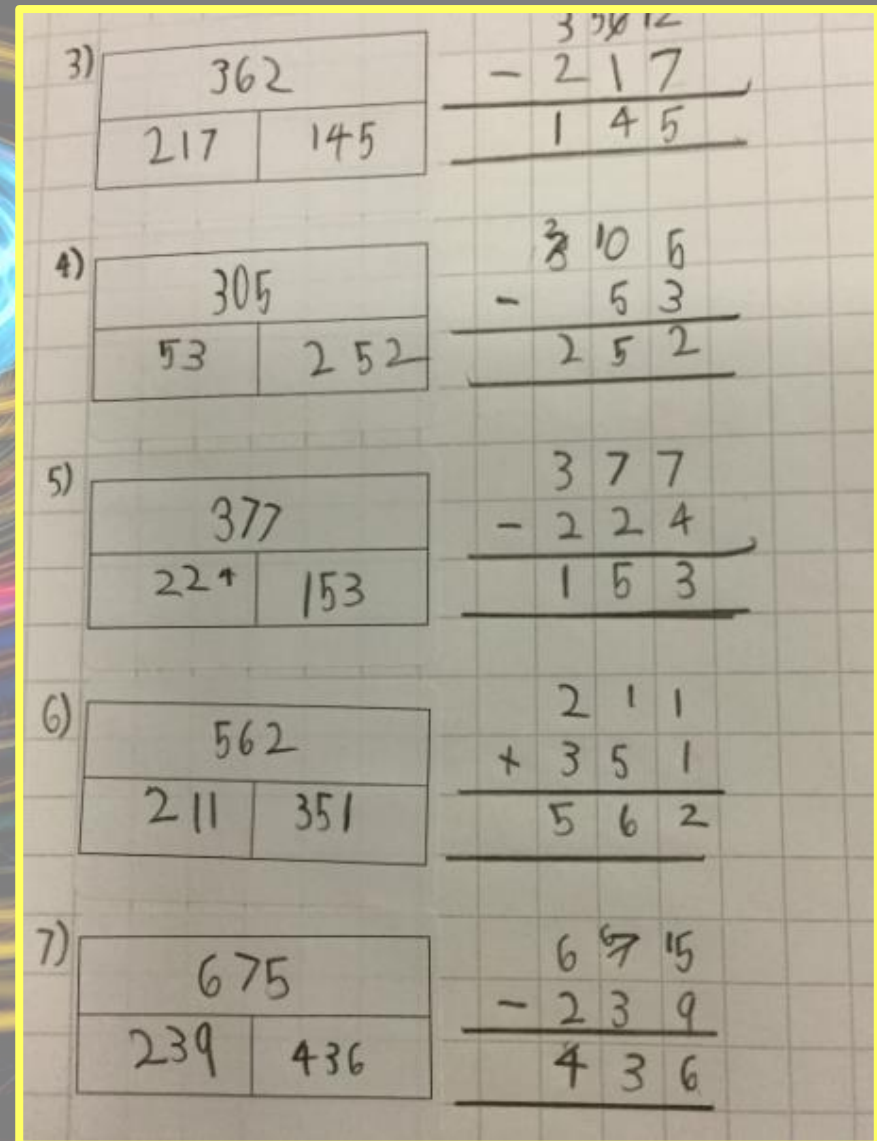 3) 362
217 145
3 5̶6̶ 12
- 2 1 7
1 4 5
4) 305
53 252
2 3̶ 10 5
- 5 3
2 5 2
5) 377
224 153
3 7 7
- 2 2 4
1 5 3
6) 562
211 351
2 1 1
+ 3 5 1
5 6 2
7) 675
239 436
6 6 7̶ 15
- 2 3 9
4 3 6